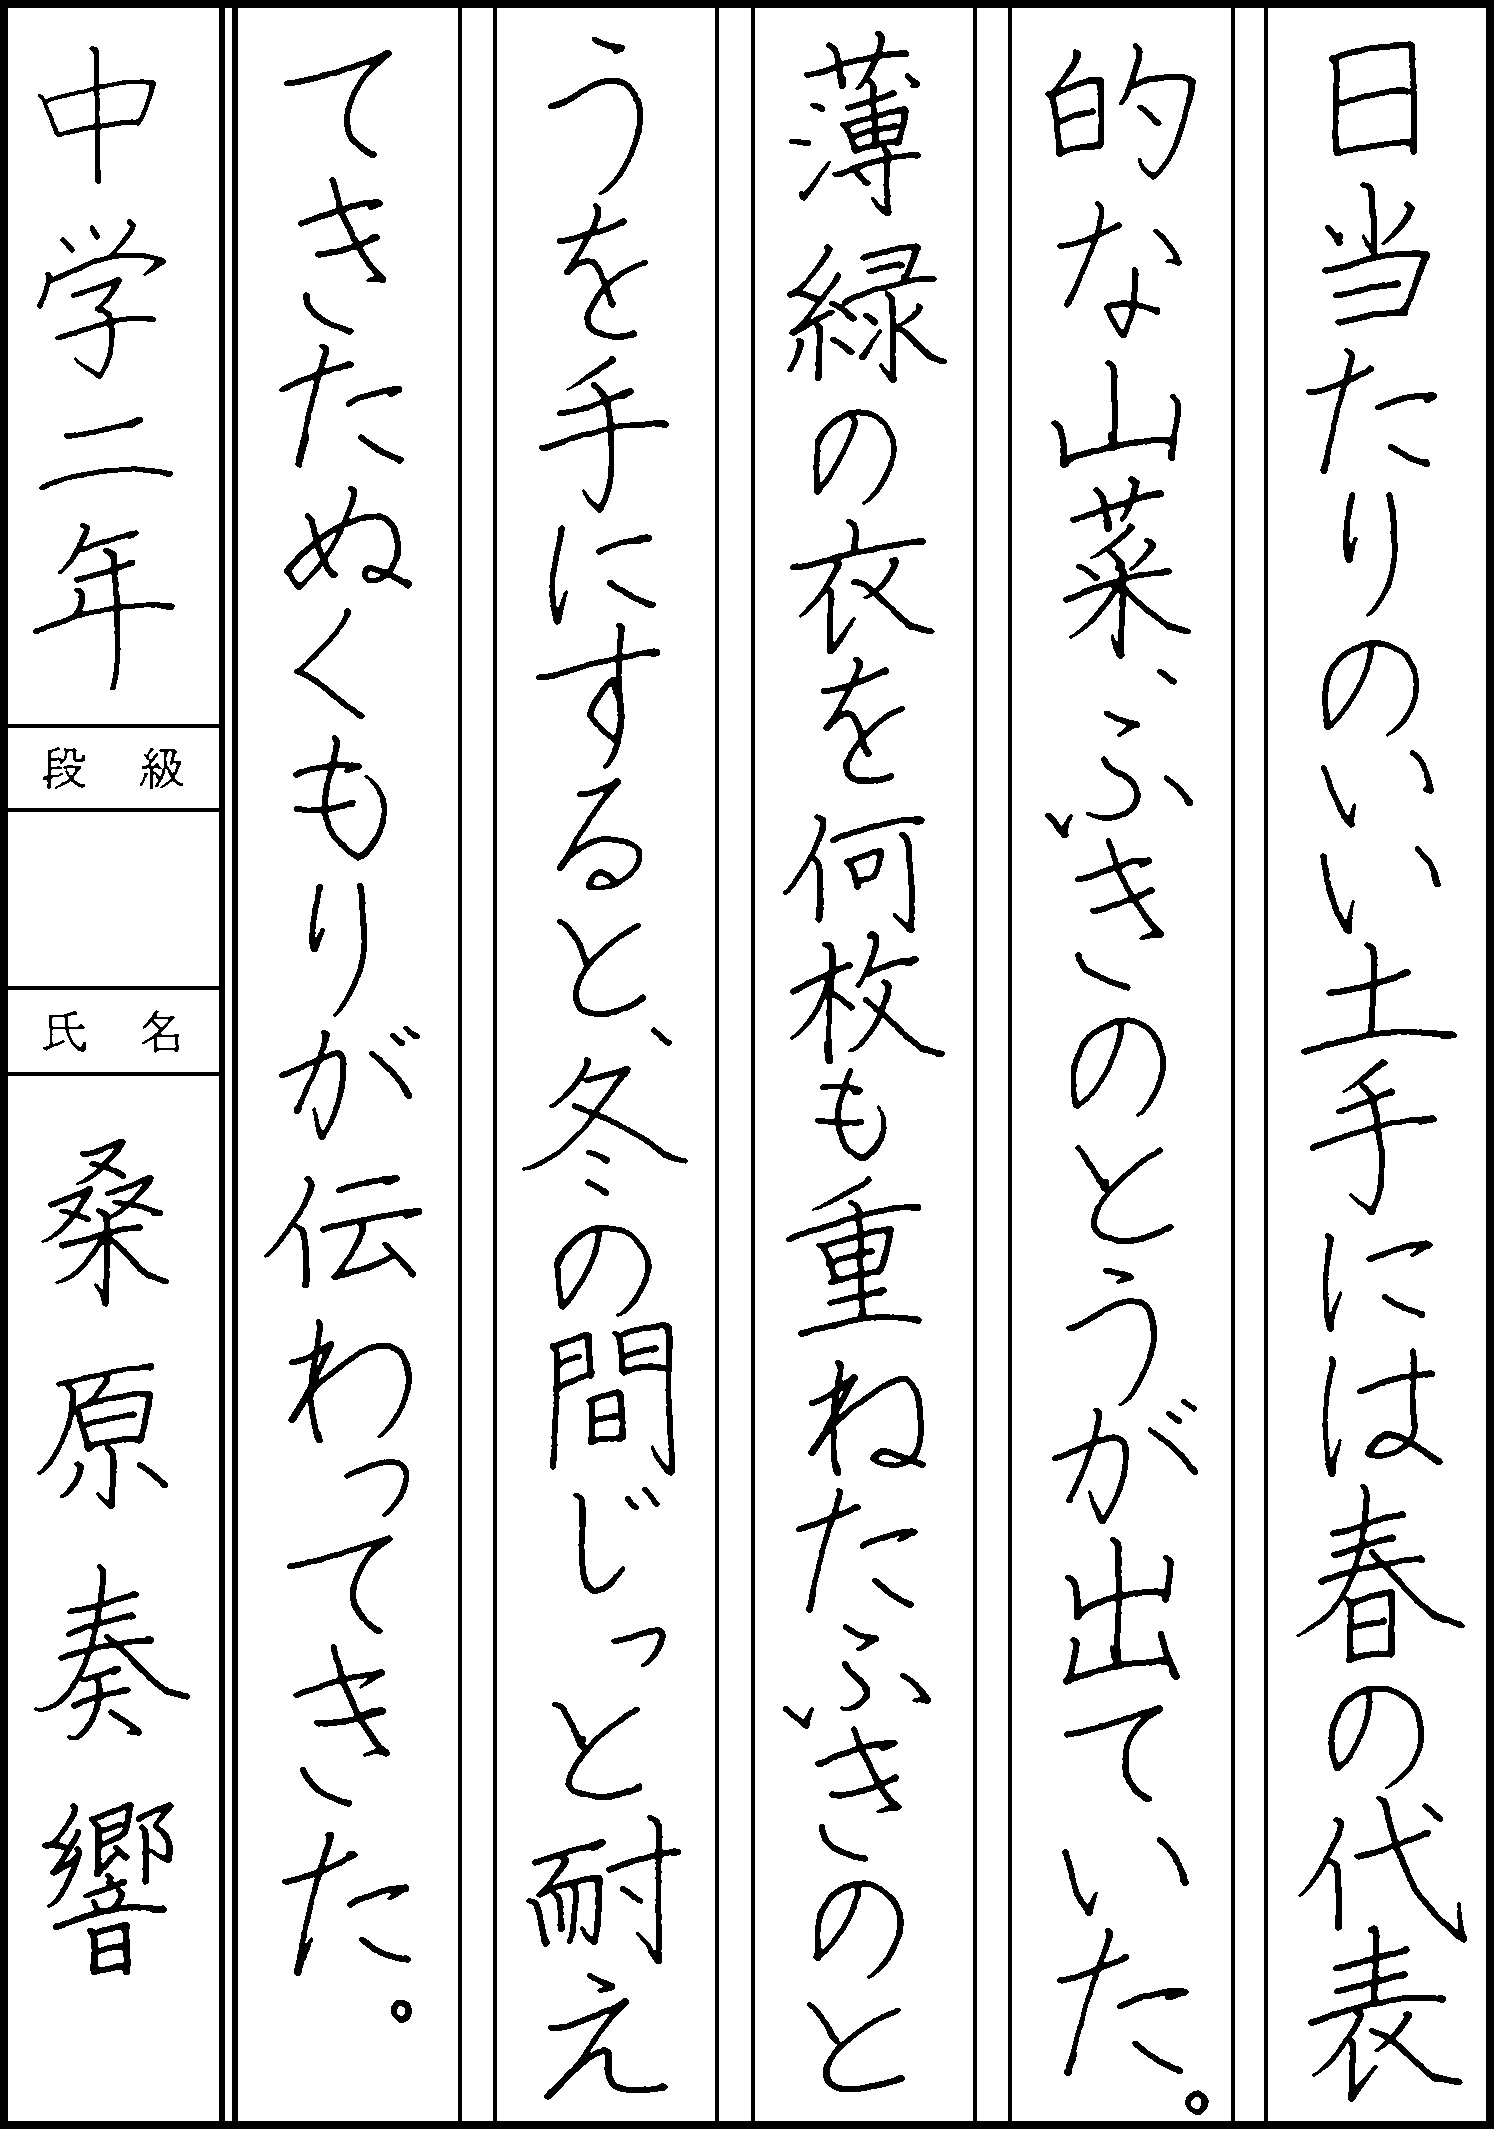 日当たりのいい土手には春の代表
的な山菜、ふきのとうが出ていた。
薄緑の衣を何枚も重ねたふきのと
うを手にすると、冬の間じっと耐え
てきたぬくもりが伝わってきた。
中学二年
段級
氏名
桑原奏響